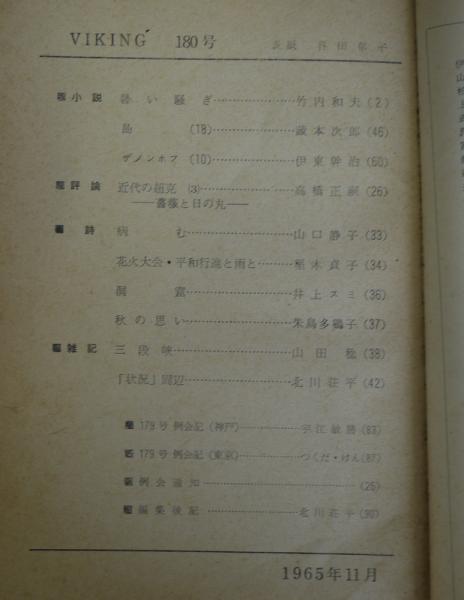 VIKING 180号 表紙 田 子
小説 い騒ぎ……竹内和夫(2)
島 (18)……本次郎(46)
ザノンホフ (10)……伊東幹治(60)
評論 近代の超克 (3)……高橋正嗣(26)
――薔薇と日の丸――
詩 病む……山口勝子(33)
花火大会・平和行進と雨と……木貞子(34)
……井上スミ(36)
秋の思い……朱鳥多鶴子(37)
雑記 三段峡……山田 (38)
「状況」周辺……北川荘平(42)
179号例会記(神戸)……宇江敏勝(83)
179号例会記(東京)……つくだ・けん(87)
例会通知……(25)
編集後記……北川荘平(90)
1965年11月